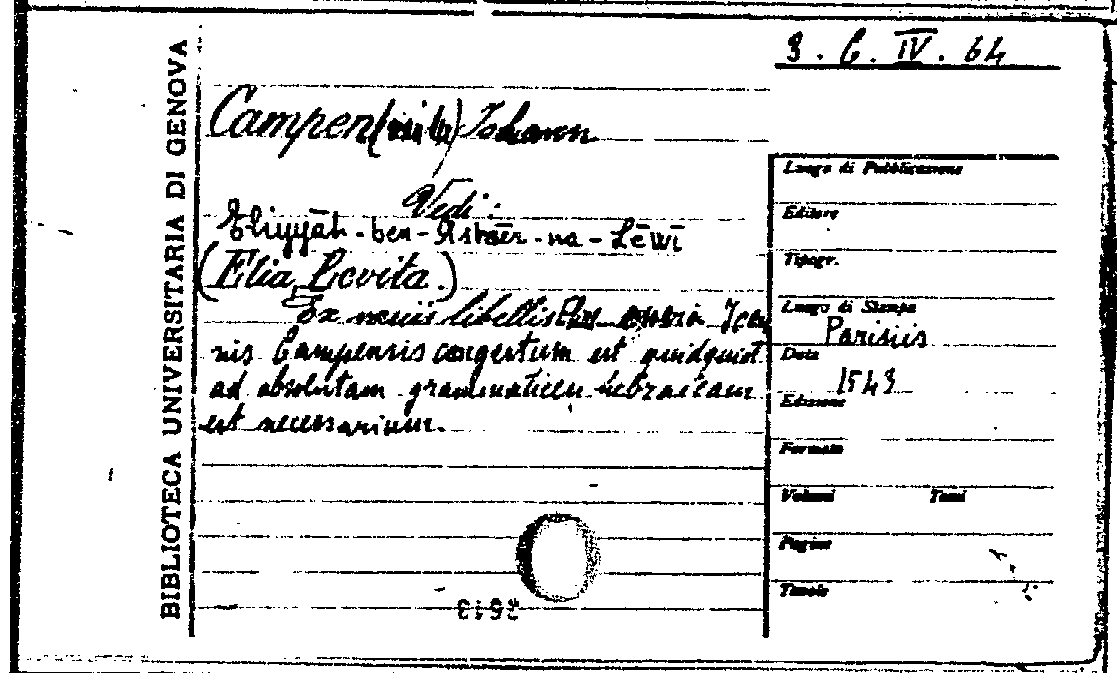 BIBLIOTECA UNIVERSITARIA DI GENOVA
3. C. IV. 64
Campen Johann
Vedi:
Eliyyāh-ben-Ashēr-ha-Lēwī
(Elia Levita.)
Ex libellis
nis Campensis congestum est quidquid
ad absolutam grammaticen hebraicam
est necessarium.
Luogo di Pubblicazione
Editore
Tipogr.
Luogo di Stampa
Parisiis
Data
1543
Edizione
Formato
Volumi Tomi
Pagine
Tavole